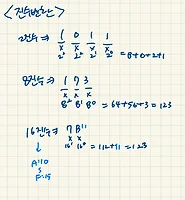 <진수변환>
2진수 ⇒ 1 0 1 1
x x x x
2³ 2² 2¹ 2⁰ = 8+0+2+1
8진수 ⇒ 1 7 3
x x x
8² 8¹ 8⁰ = 64+56+3 = 123
16진수 ⇒ 7 B"
x x
16¹ 16⁰ = 112+11 = 123
A=10
F=15